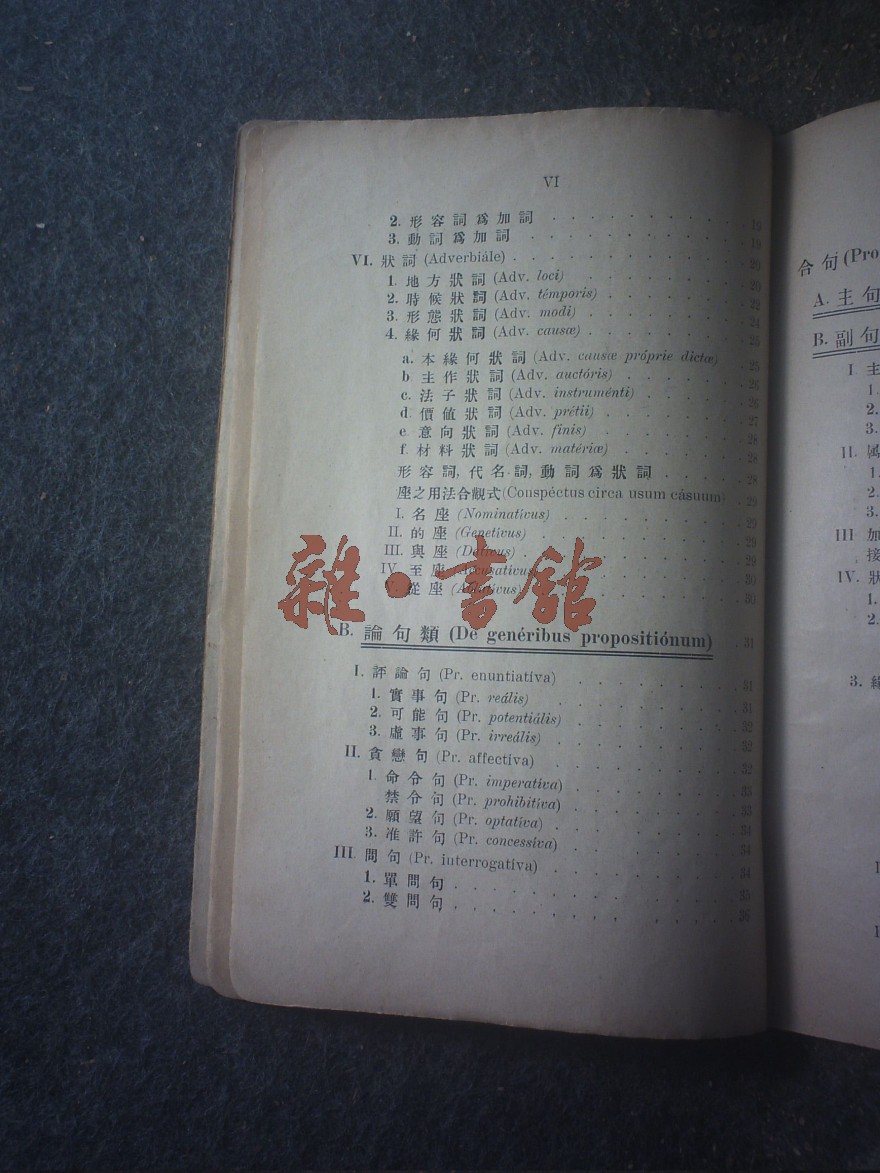 VI
2. 形容詞爲加詞 19
3. 動詞爲加詞 19
VI. 狀詞 (Adverbiále) 20
1. 地方狀詞 (Adv. loci) 20
2. 時候狀詞 (Adv. témporis) 22
3. 形態狀詞 (Adv. modi) 24
4. 緣何狀詞 (Adv. causæ) 25
a. 本緣何狀詞 (Adv. causæ próprie dictæ) 25
b. 主作狀詞 (Adv. auctóris) 26
c. 法子狀詞 (Adv. instruménti) 26
d. 價値狀詞 (Adv. prétii) 27
e. 意向狀詞 (Adv. finis) 28
f. 材料狀詞 (Adv. matériæ) 28
形容詞, 代名詞, 動詞爲狀詞 28
座之用法合觀式 (Conspéctus circa usum cásuum) 29
I. 名座 (Nominatívus) 29
II. 的座 (Genetívus) 29
III. 與座 (Datívus) 29
IV. 至座 (Accusatívus) 30
從座 (Ablatívus) 30
雜·書館
B. 論句類 (De genéribus propositiónum) 31
I. 評論句 (Pr. enuntiatíva) 31
1. 實事句 (Pr. reális) 31
2. 可能句 (Pr. potentiális) 32
3. 虛事句 (Pr. irreális) 32
II. 貪戀句 (Pr. affectíva) 32
1. 命令句 (Pr. imperatíva) 33
禁令句 (Pr. prohibitíva) 33
2. 願望句 (Pr. optatíva) 34
3. 准許句 (Pr. concessíva) 34
III. 問句 (Pr. interrogatíva) 34
1. 單問句 35
2. 雙問句 36
合句 (Pro
A. 主句
B. 副句
I. 主
1.
2.
3.
II.
1.
2.
3.
III 加
接
IV. 狀
1.
2.
3. 緣